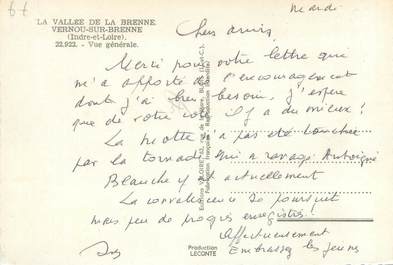 mardi
LA VALLEE DE LA BRENNE
VERNOU-SUR-BRENNE
(Indre-et-Loire)
22.922. - Vue générale.
Chers amis,
Merci pour votre lettre qui
m'a apporté de l'encouragement
dont j'ai bien besoin, j'espère
que de votre côté il y a du mieux !
La Motte n'a pas été touchée
par la tornade qui a ravagé Antoigné
Blanche y est actuellement
La convalescence se poursuit
mais peu de progrès enregistrés.
Affectueusement
Embrassez les jeunes
Production
LECONTE